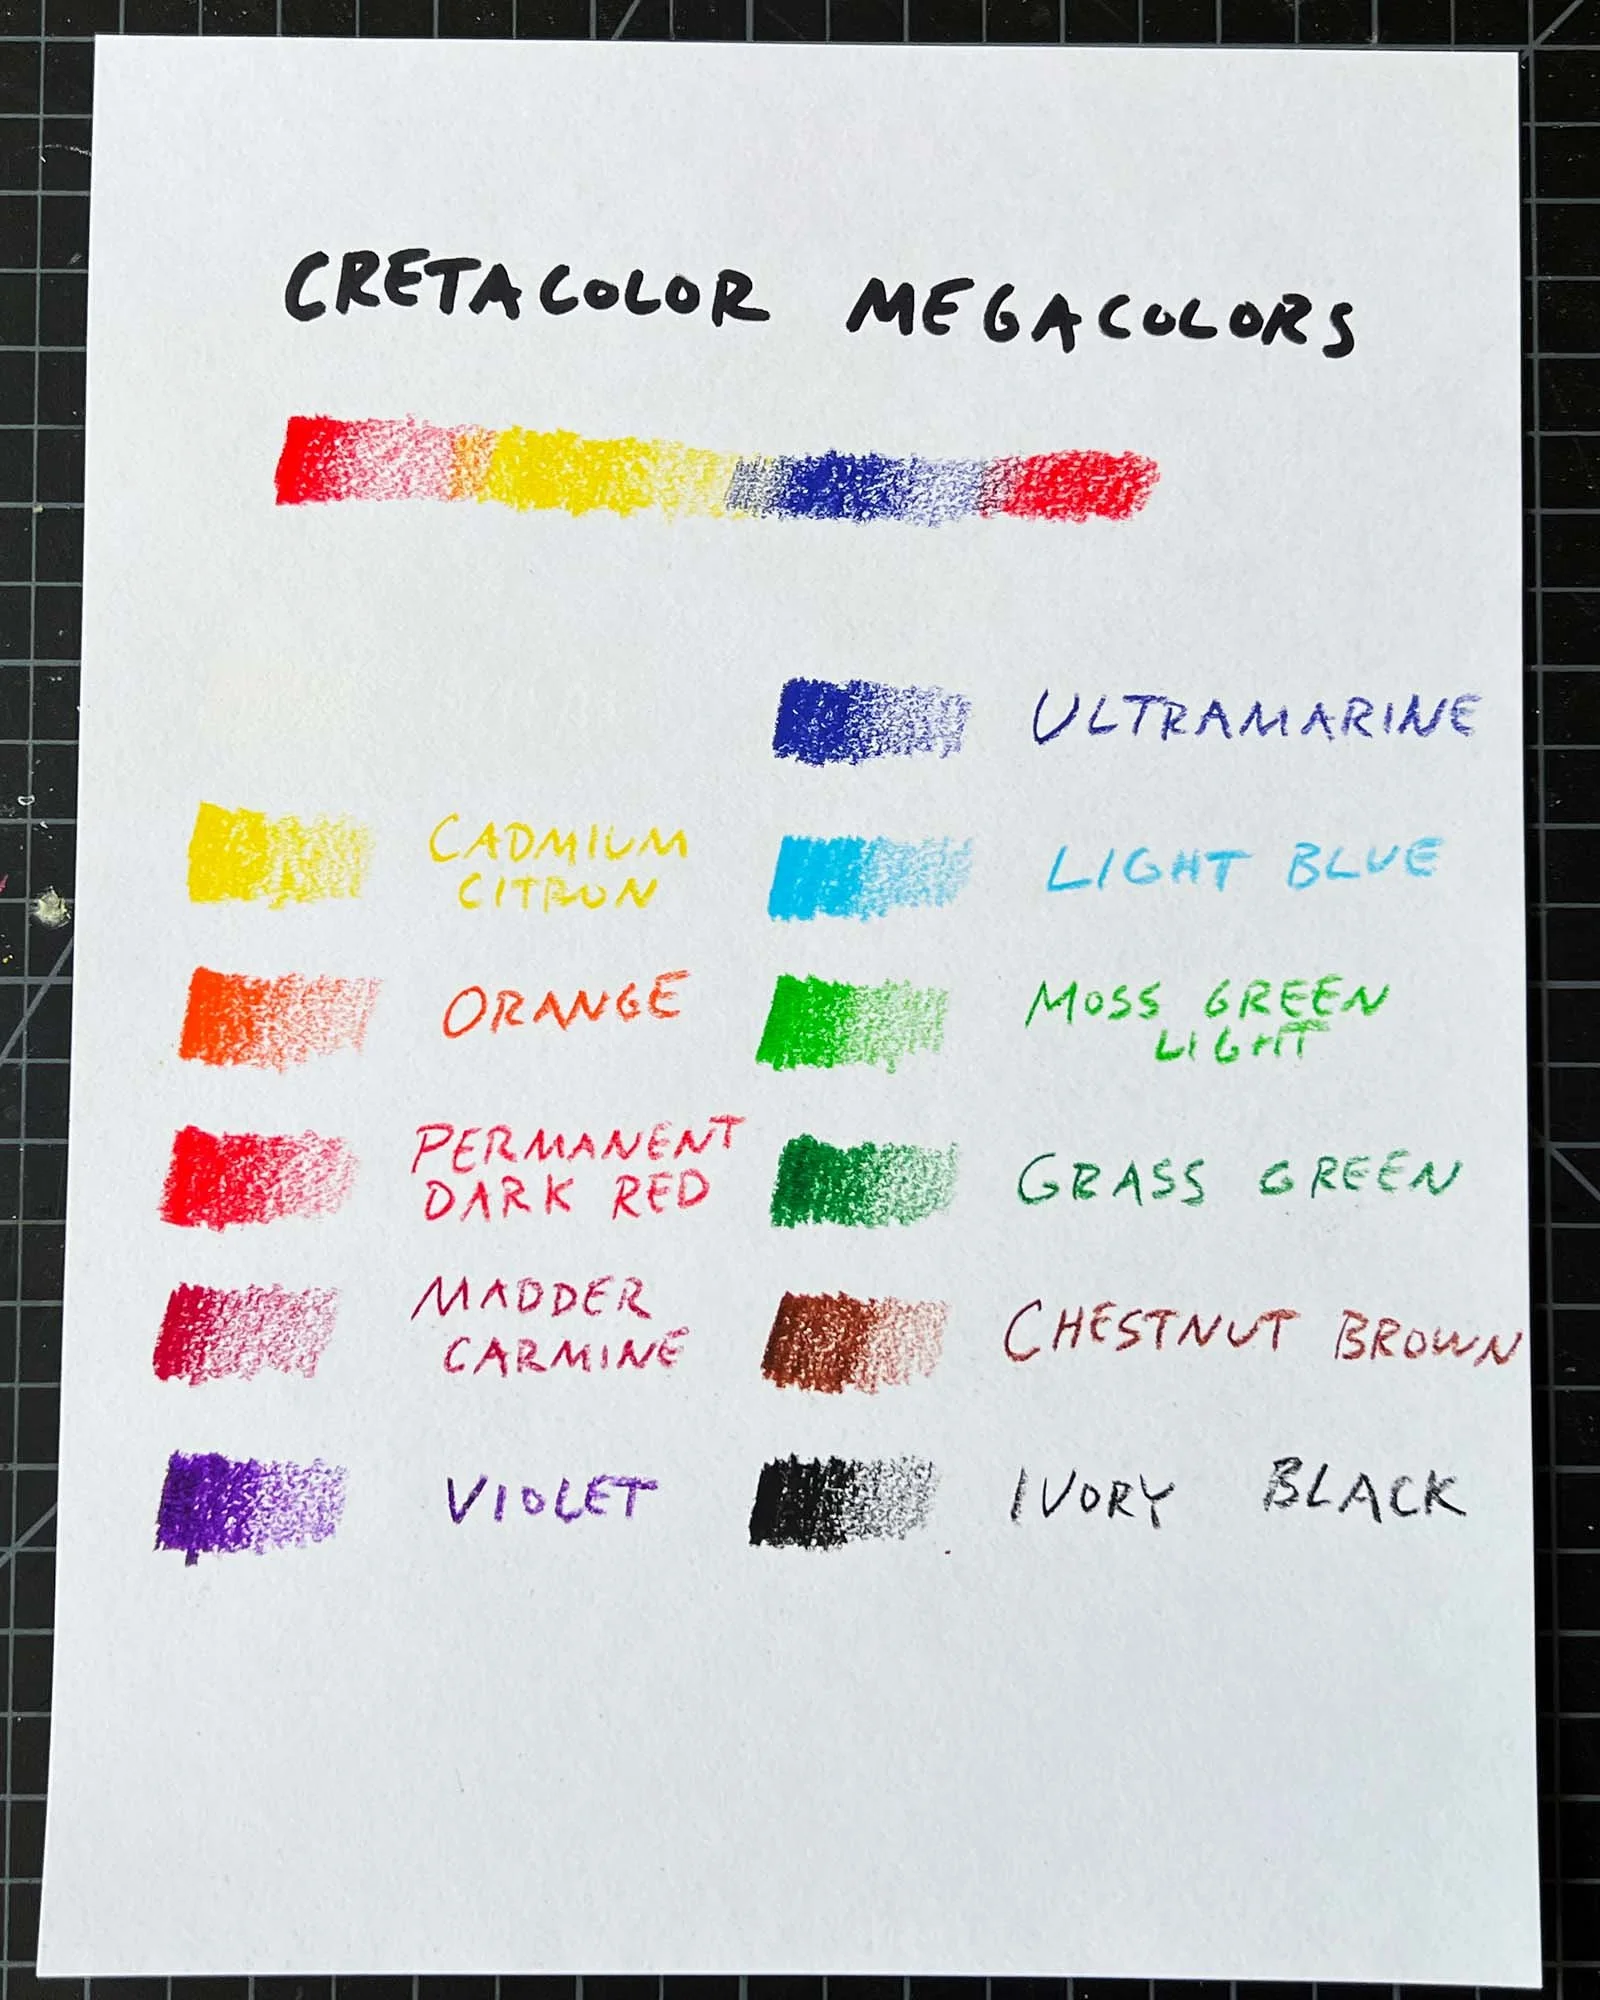 CRETACOLOR MEGACOLORS
CADMIUM
CITRON
ORANGE
PERMANENT
DARK RED
MADDER
CARMINE
VIOLET
ULTRAMARINE
LIGHT BLUE
MOSS GREEN
LIGHT
GRASS GREEN
CHESTNUT BROWN
IVORY BLACK